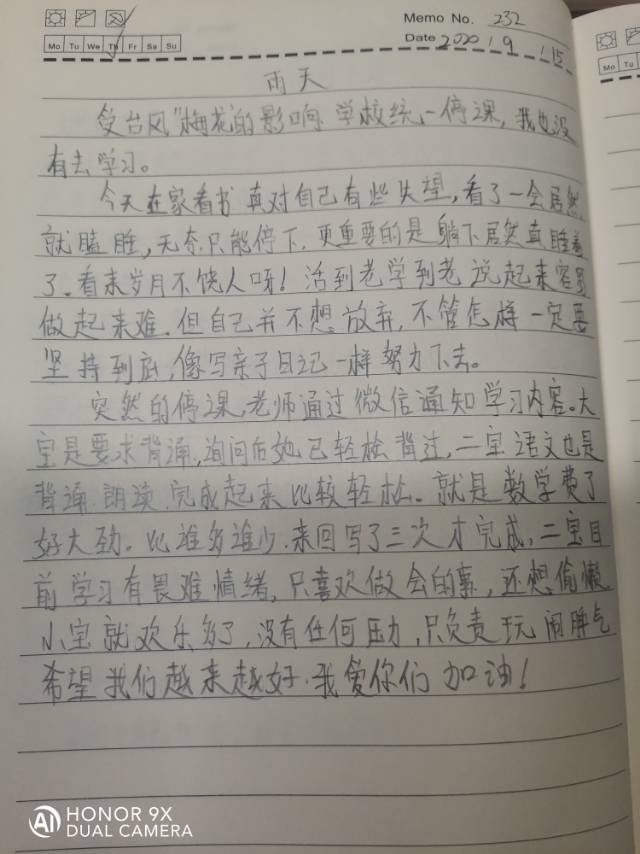 Memo No. 232
Mo Tu We Th Fr Sa Su
Date 2020 1 9 1 15
雨天
受台风"梅花的影响.学校统一停课,我也没
有去学习。
今天在家看书真对自己有些失望,看了一会居然
就瞌睡,无奈只能停下.更重要的是躺下居然真睡着
了.看来岁月不饶人呀!活到老学到老说起来容易
做起来难.但自己并不想放弃,不管怎样一定要
坚持到底,像写亲子日记一样努力下去。
突然的停课,老师通过微信通知学习内容。大
宝是要求背诵,询问后她已轻松背过,二宝语文也是
背诵.朗读.完成起来比较轻松。就是数学费了
好大劲。比谁多谁少.来回写了三次才完成,二宝目
前学习有畏难情绪,只喜欢做会的事,还想偷懒
小宝就欢乐多了,没有任何压力,只负责玩闹脾气
希望我们越来越好.我爱你们加油!
Mo Tu
HONOR 9X
DUAL CAMERA